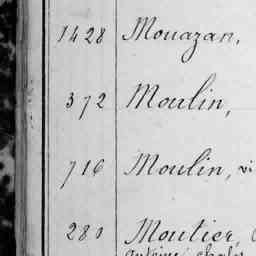 1428 Mouazan,
372 Moulin,
716 Moulin, vi
280 Moutier,
antoine charles